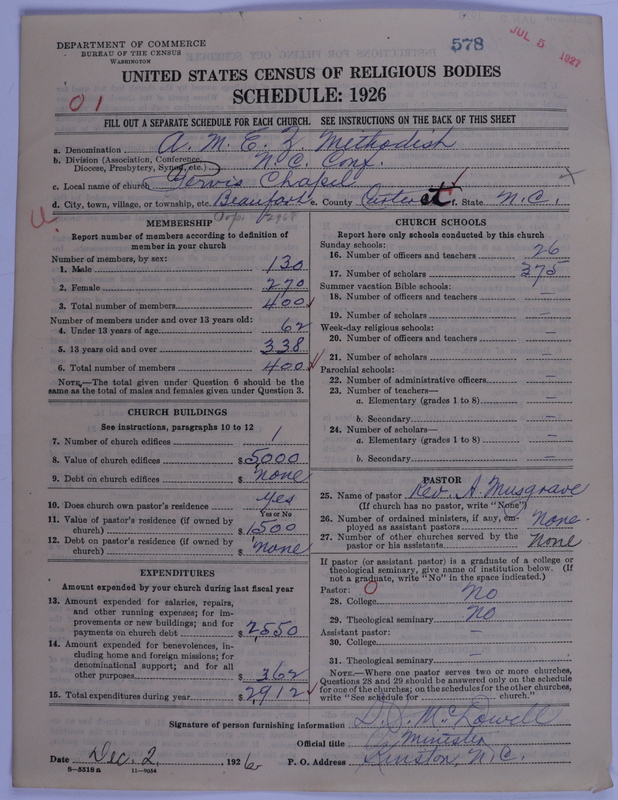 DEPARTMENT OF COMMERCE
BUREAU OF THE CENSUS
WASHINGTON
578
JUL 5 1927
UNITED STATES CENSUS OF RELIGIOUS BODIES
SCHEDULE: 1926
01
FILL OUT A SEPARATE SCHEDULE FOR EACH CHURCH. SEE INSTRUCTIONS ON THE BACK OF THIS SHEET
a. Denomination A. M. E. Z. Methodish
b. Division (Association, Conference, Diocese, Presbytery, Synod, etc.) N.C. Conf.
c. Local name of church Jervis Chapil
d. City, town, village, or township, etc. Beaufort e. County Carteret f. State N.C.
MEMBERSHIP
Report number of members according to definition of
member in your church
Number of members, by sex:
1. Male 130
2. Female 270
3. Total number of members 400
Number of members under and over 13 years old:
4. Under 13 years of age 62
5. 13 years old and over 338
6. Total number of members 400
NOTE.—The total given under Question 6 should be
same as the total of males and females given under Question 3.
CHURCH BUILDINGS
See instructions, paragraphs 10 to 12
7. Number of church edifices 1
8. Value of church edifices $5000
9. Debt on church edifices $ None
10. Does church own pastor's residence Yes
Yes or No
11. Value of pastor's residence (if owned by
church) $1500
12. Debt on pastor's residence (if owned by
church) $ None
EXPENDITURES
Amount expended by your church during last fiscal year
13. Amount expended for salaries, repairs,
and other running expenses; for im-
provements or new buildings; and for
payments on church debt $2550
14. Amount expended for benevolences, in-
cluding home and foreign missions; for
denominational support; and for all
other purposes $362
15. Total expenditures during year $2912
CHURCH SCHOOLS
Report here only schools conducted by this church
Sunday schools:
16. Number of officers and teachers 26
17. Number of scholars 375
Summer vacation Bible schools:
18. Number of officers and teachers —
19. Number of scholars —
Week-day religious schools:
20. Number of officers and teachers —
21. Number of scholars —
Parochial schools:
22. Number of administrative officers —
23. Number of teachers—
a. Elementary (grades 1 to 8) —
b. Secondary —
24. Number of scholars—
a. Elementary (grades 1 to 8) —
b. Secondary —
PASTOR
25. Name of pastor Rev. A. Musgrave
(If church has no pastor, write "None")
26. Number of ordained ministers, if any, em-
ployed as assistant pastors None.
27. Number of other churches served by the
pastor or his assistants None
If pastor (or assistant pastor) is a graduate of a college or
theological seminary, give name of institution below. (If
not a graduate, write "No" in the space indicated.)
Pastor: O
28. College No
29. Theological seminary No
Assistant pastor:
30. College —
31. Theological seminary —
NOTE.—Where one pastor serves two or more churches,
Questions 28 and 29 should be answered only on the schedule
for one of the churches; on the schedules for the other churches,
write "See schedule for church."
Signature of person furnishing information D. S. McDowell
Official title Minister
Date Dec. 2, 1926 P. O. Address Kinston, N.C.
8—5518a 11—9054